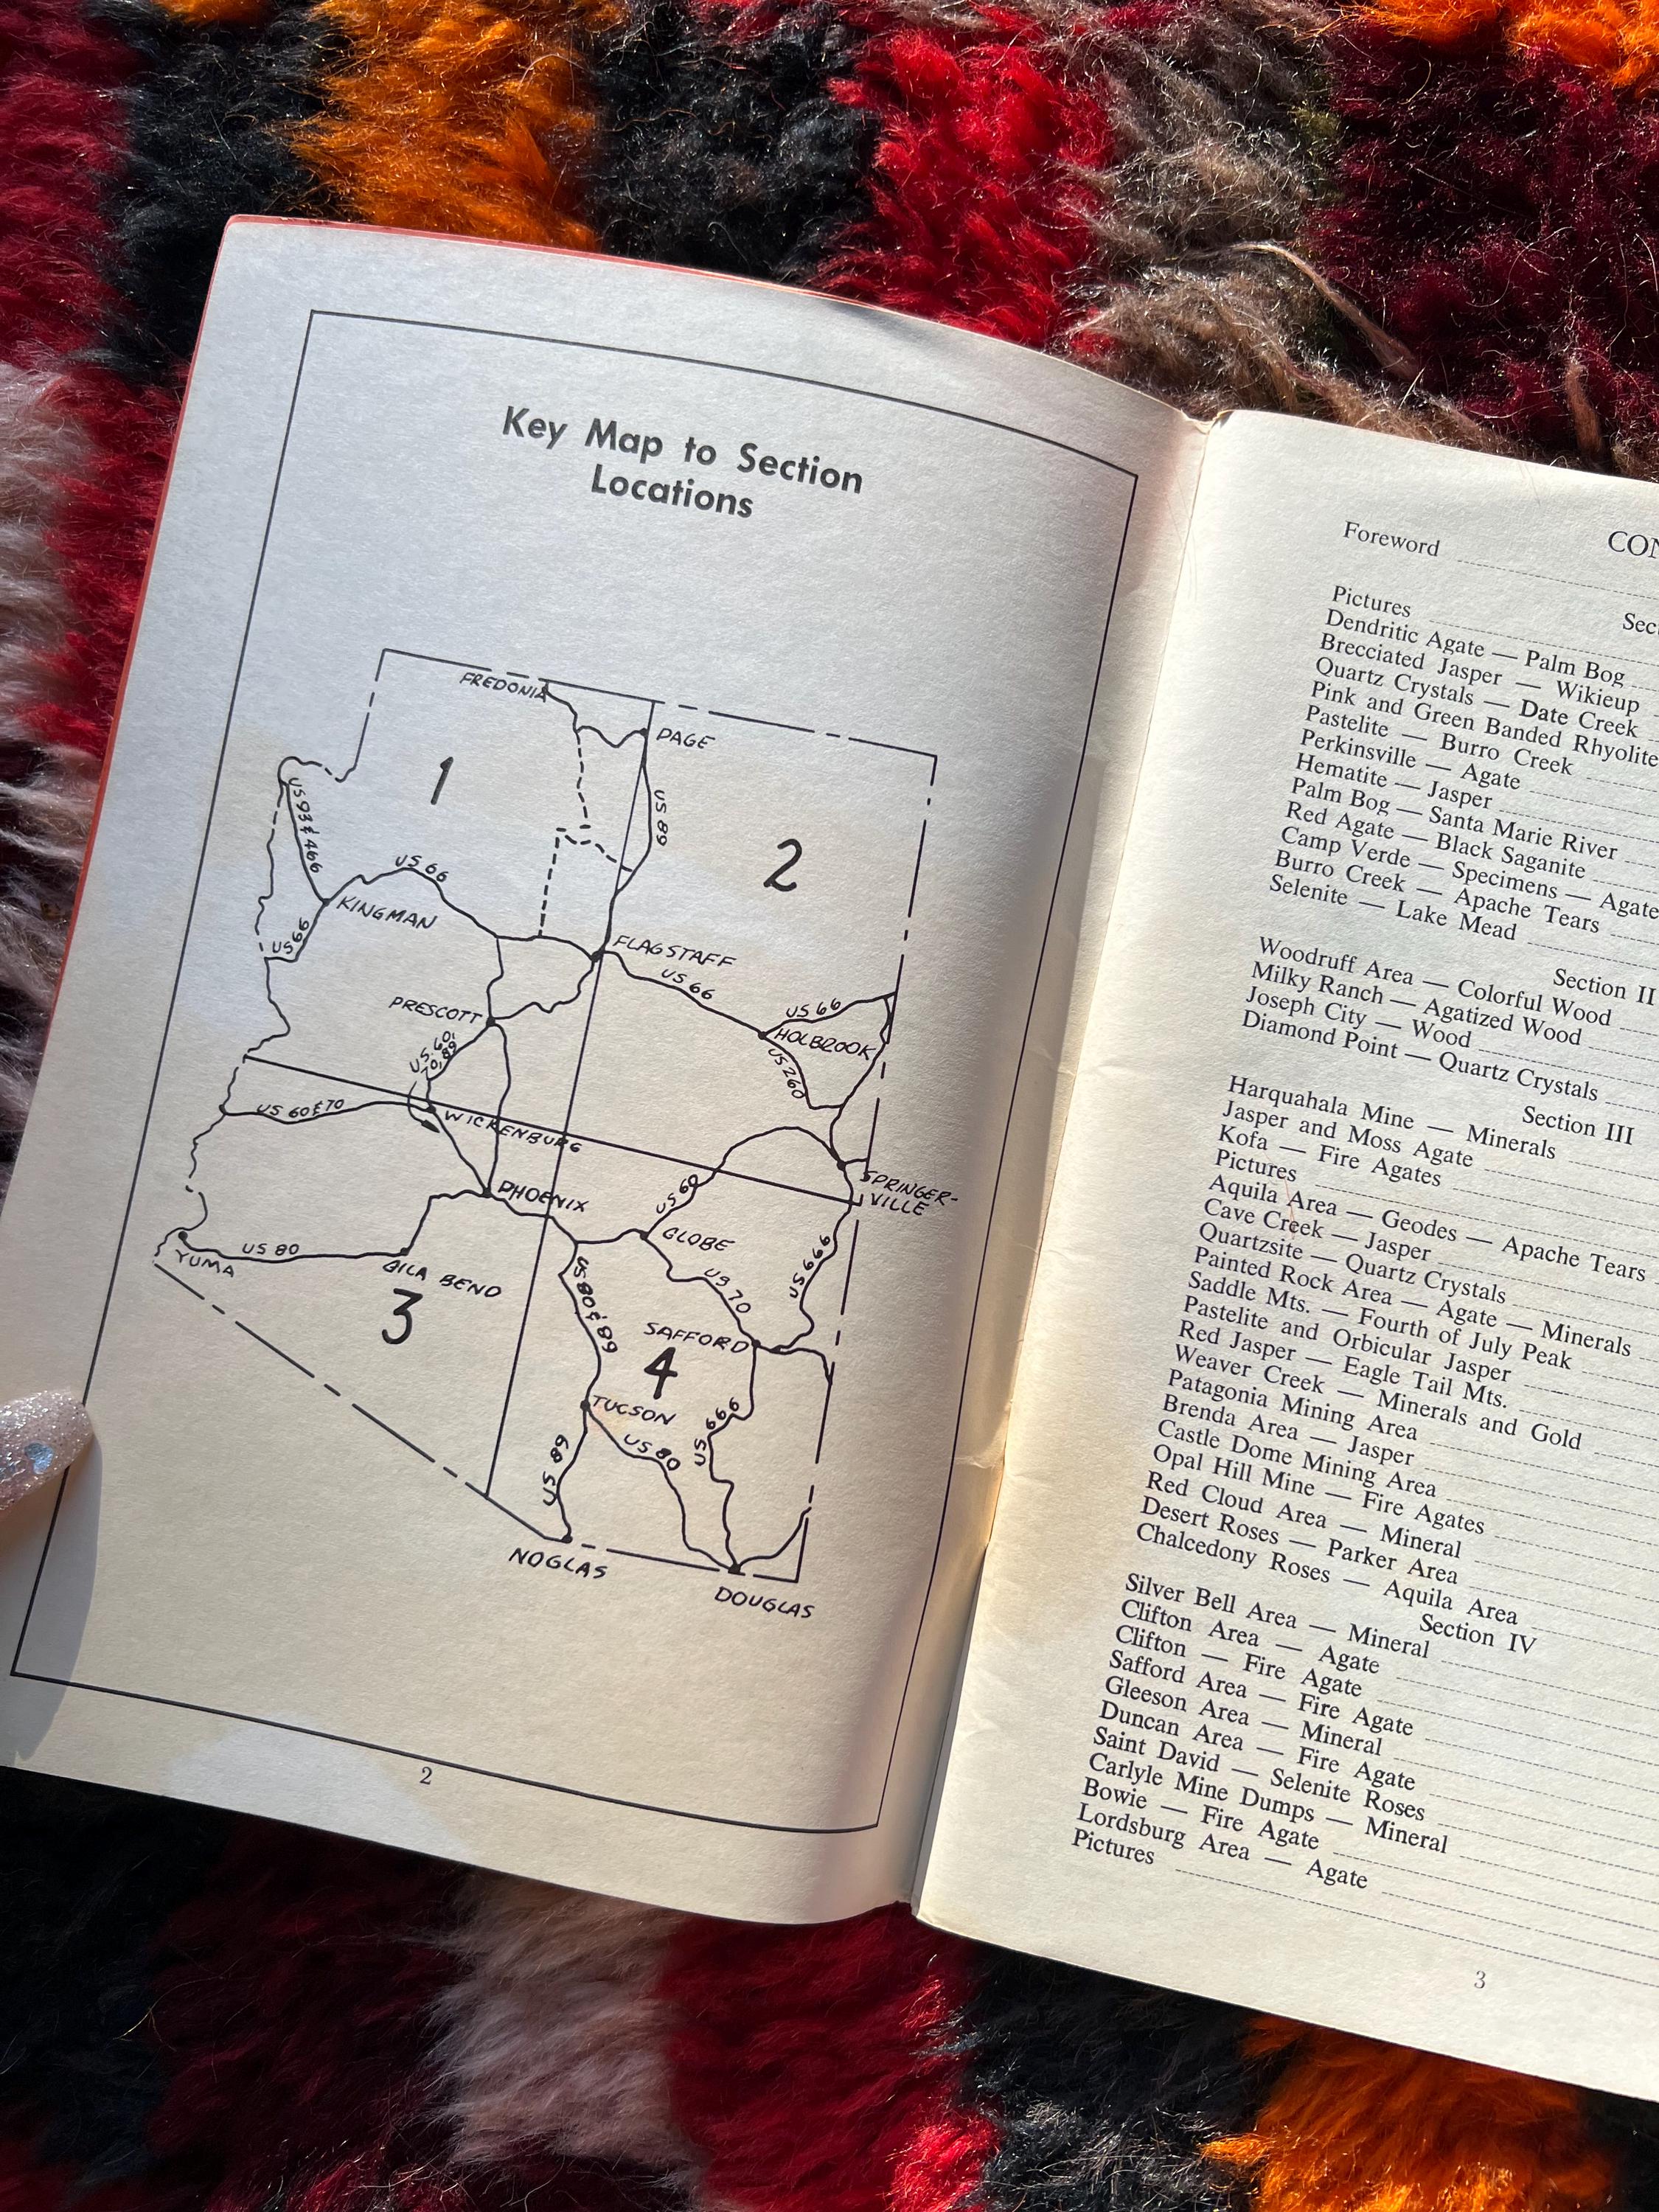 Key Map to Section
Locations
FREDONIA
PAGE
1
US 93 & 466
US 89
2
US 66
KINGMAN
US 66
FLAGSTAFF
US 66
PRESCOTT
US 66
HOLBROOK
US 260
US 60,
70, 89
US 60 & 70
WICKENBURG
SPRINGER-
VILLE
US 60
PHOENIX
GLOBE
US 666
YUMA
US 80
GILA BEND
US 70
US 80 & 89
3
SAFFORD
4
TUCSON
US 666
US 80
US 89
NOGLAS
DOUGLAS
2
CON
Foreword
Sec
Pictures
Dendritic Agate — Palm Bog
Brecciated Jasper — Wikieup
Quartz Crystals — Date Creek
Pink and Green Banded Rhyolite
Pastelite — Burro Creek
Perkinsville — Agate
Hematite — Jasper
Palm Bog — Santa Marie River
Red Agate — Black Saganite
Camp Verde — Specimens — Agate
Burro Creek — Apache Tears
Selenite — Lake Mead
Section II
Woodruff Area — Colorful Wood
Milky Ranch — Agatized Wood
Joseph City — Wood
Diamond Point — Quartz Crystals
Section III
Harquahala Mine — Minerals
Jasper and Moss Agate
Kofa — Fire Agates
Pictures
Aquila Area — Geodes — Apache Tears
Cave Creek — Jasper
Quartzsite — Quartz Crystals
Painted Rock Area — Agate — Minerals
Saddle Mts. — Fourth of July Peak
Pastelite and Orbicular Jasper
Red Jasper — Eagle Tail Mts.
Weaver Creek — Minerals and Gold
Patagonia Mining Area
Brenda Area — Jasper
Castle Dome Mining Area
Opal Hill Mine — Fire Agates
Red Cloud Area — Mineral
Desert Roses — Parker Area
Chalcedony Roses — Aquila Area
Section IV
Silver Bell Area — Mineral
Clifton Area — Agate
Clifton — Fire Agate
Safford Area — Fire Agate
Gleeson Area — Mineral
Duncan Area — Fire Agate
Saint David — Selenite Roses
Carlyle Mine Dumps — Mineral
Bowie — Fire Agate
Lordsburg Area — Agate
Pictures
3